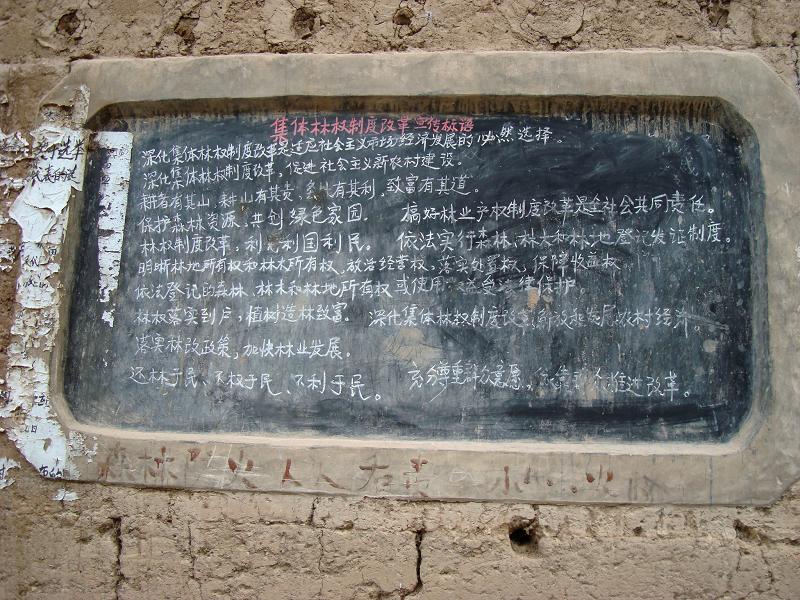 集体林权制度改革宣传标语
深化集体林权制度改革是适应社会主义市场经济发展的必然选择。
深化集体林权制度改革,促进社会主义新农村建设。
耕者有其山,耕山有其责,务林有其利,致富有其道。
保护森林资源,共创绿色家园。 搞好林业产权制度改革是全社会共同责任。
林权制度改革,利民利国利民。 依法实行森林、林木和林地登记发证制度。
明晰林地所有权和林木所有权,放活经营权,落实处置权,保障收益权
依法登记的森林、林木和林地所有权或使用 益受法律保护。
林权落实到户,植树造林致富。 深化集体林权制度改革,解放 发展农村经济。
落实林改政策,加快林业发展。
还林于民、不权于民、不利于民。 充分尊重群众意愿, 推进改革。
森林 火人人有责 小 火